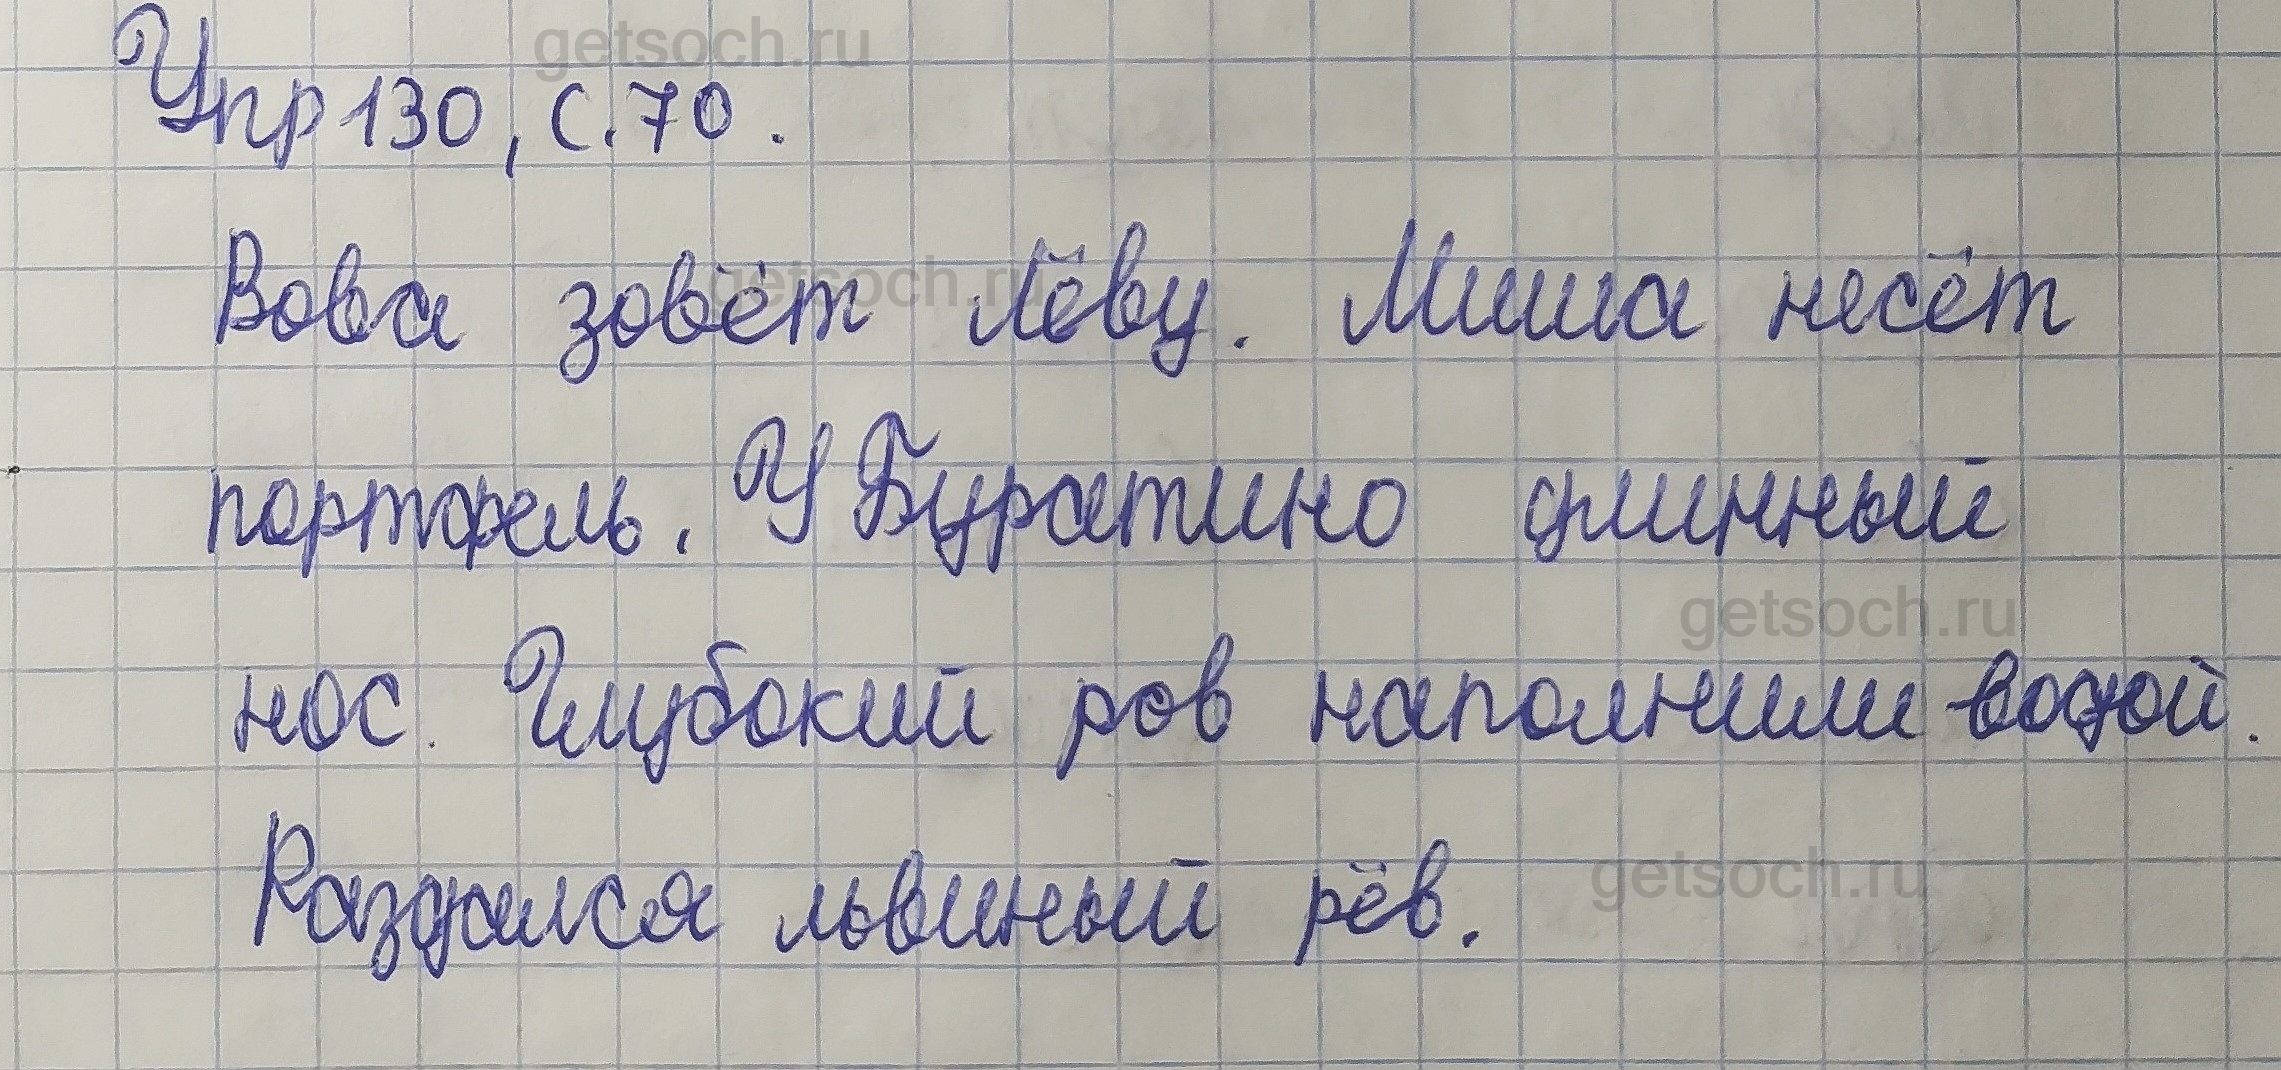 getsoch.ru
Упр 130, с. 70.
Вова зовёт Лёву. Миша несёт
getsoch.ru
портфель. У Буратино длинный
getsoch.ru
нос. Глубокий ров наполнили водой.
Раздался львиный рёв.
getsoch.ru